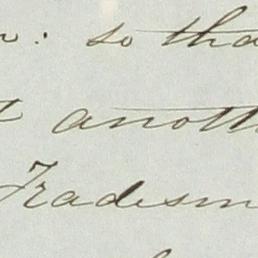 : so tha
anoth
Tradesm